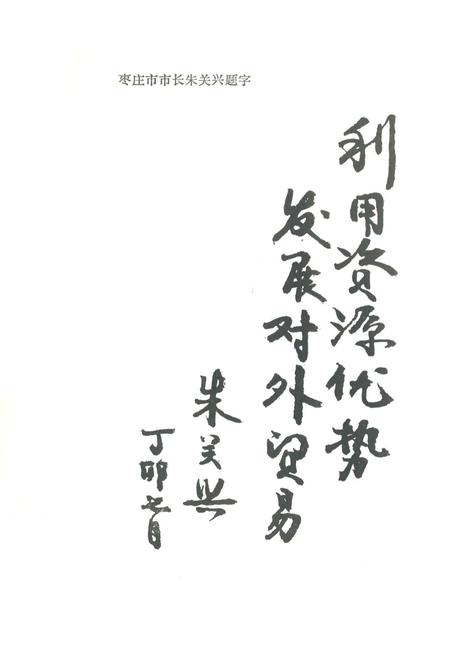 枣庄市市长朱关兴题字
利用资源优势
发展对外贸易
朱关兴
丁卯七月